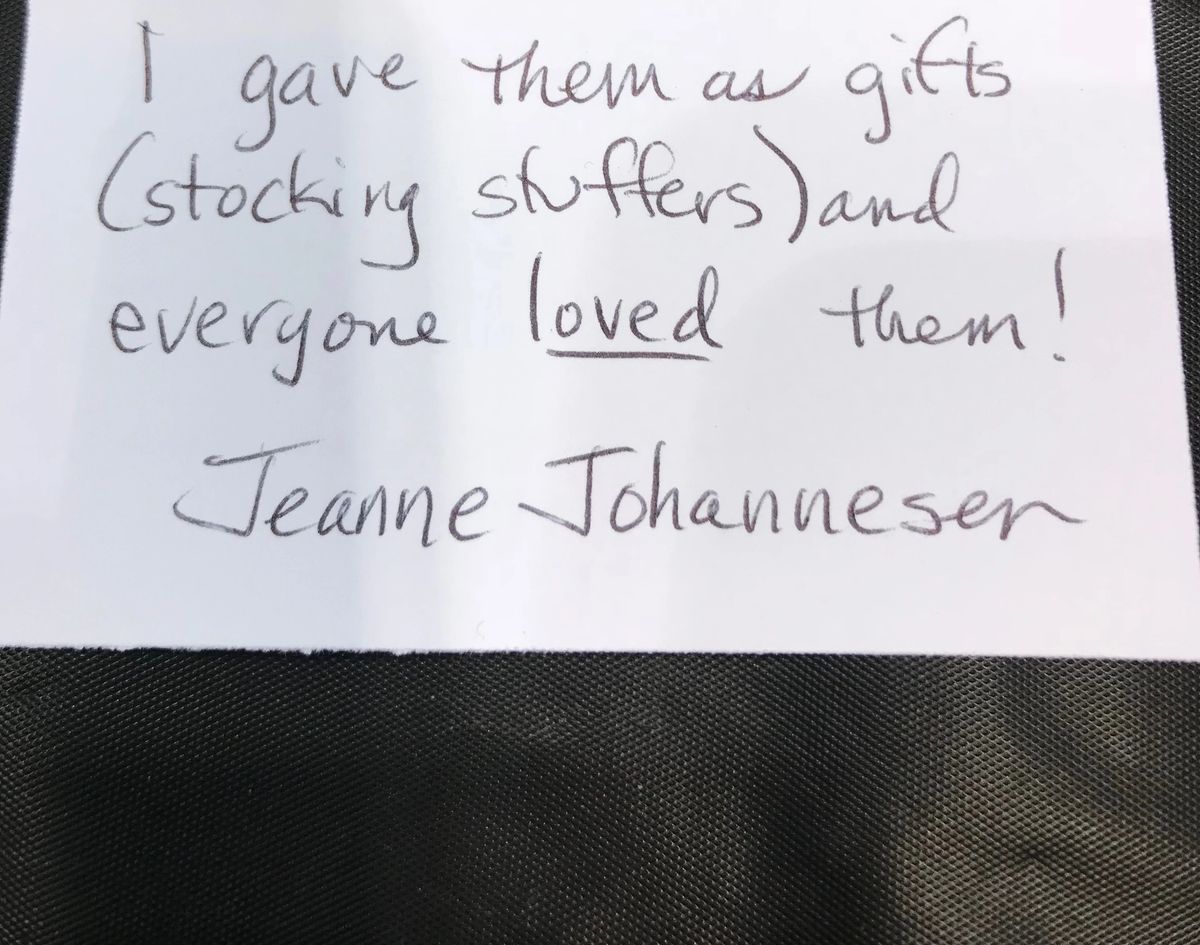 I gave them as gifts
(stocking stuffers) and
everyone loved them!
Jeanne Johannesen